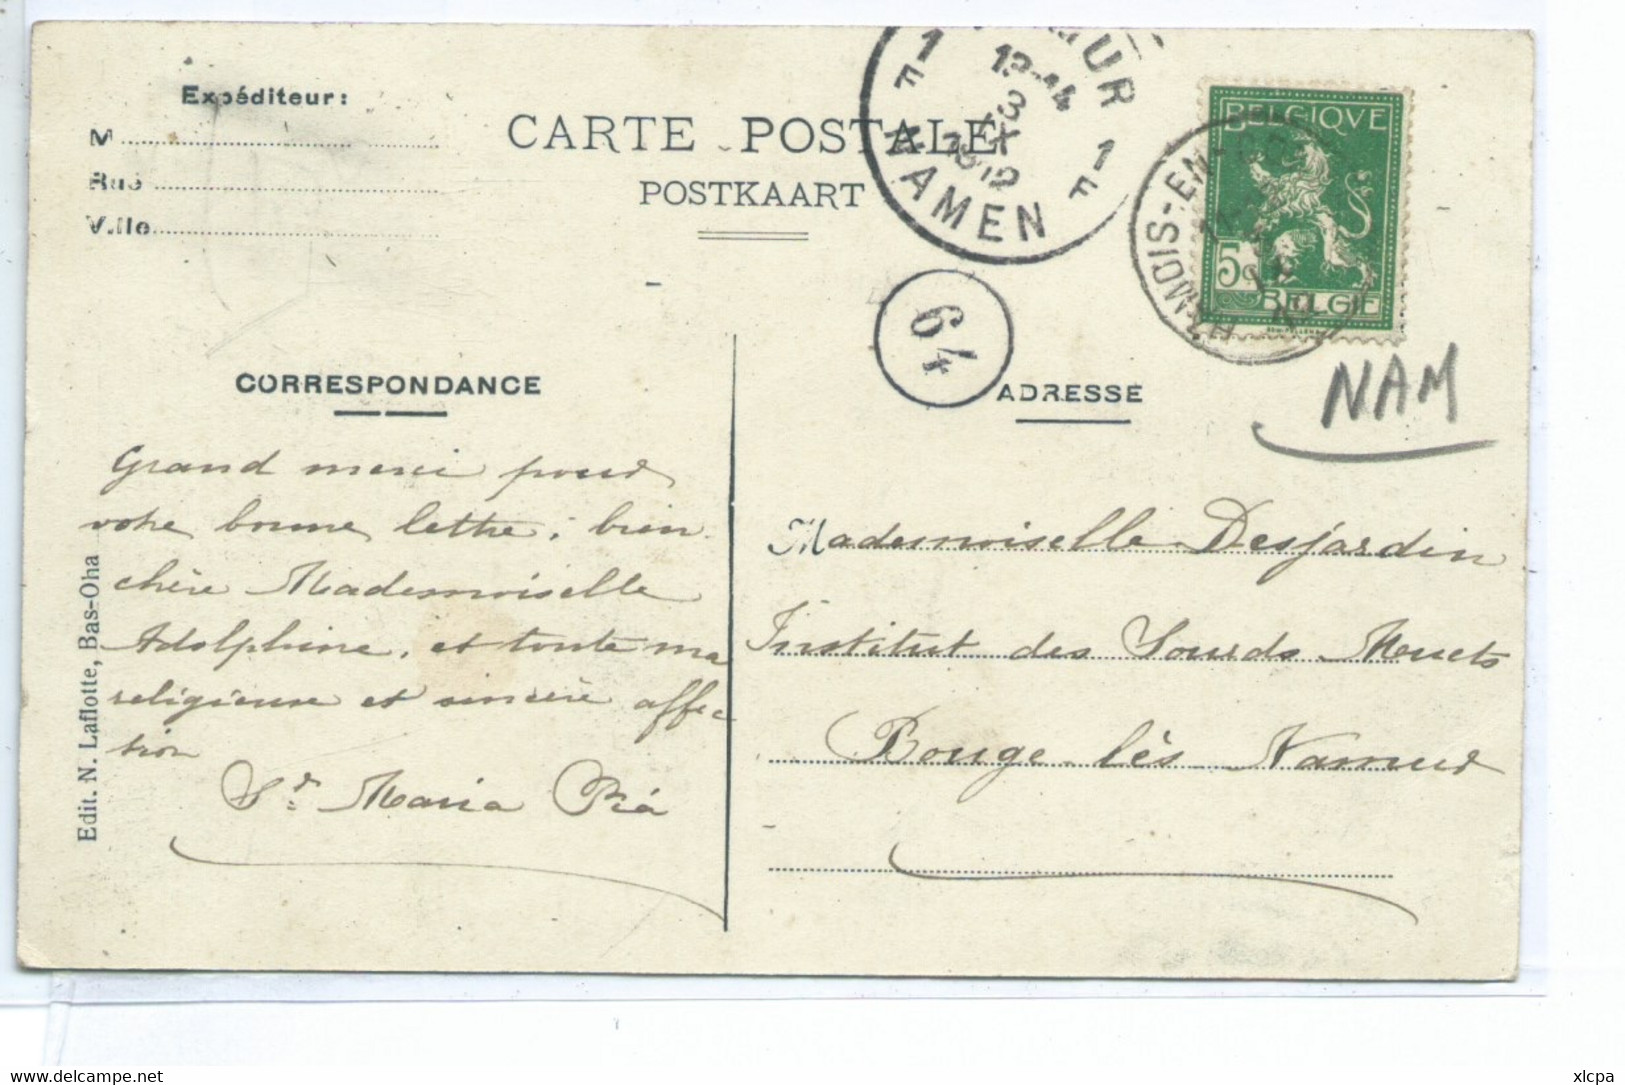 Expéditeur:
M
Rue
Ville
CARTE POSTALE
POSTKAART
1 F NAMEN 1 F
3
IX
1912
HAMOIS-EN-CO
BELGIQVE
5c
BELGIË
64
NAM
CORRESPONDANCE
ADRESSE
Grand merci pour
votre bonne lettre, bien
chère Mademoiselle
Adolphine, et toute ma
religieuse et sincère affec
tion
Sr Maria Pià
Mademoiselle Desjardin
Institut des Sourds Muets
Bouge-lès Namur
Edit. N. Laflotte, Bas-Oha
www.delcampe.net
xlcpa